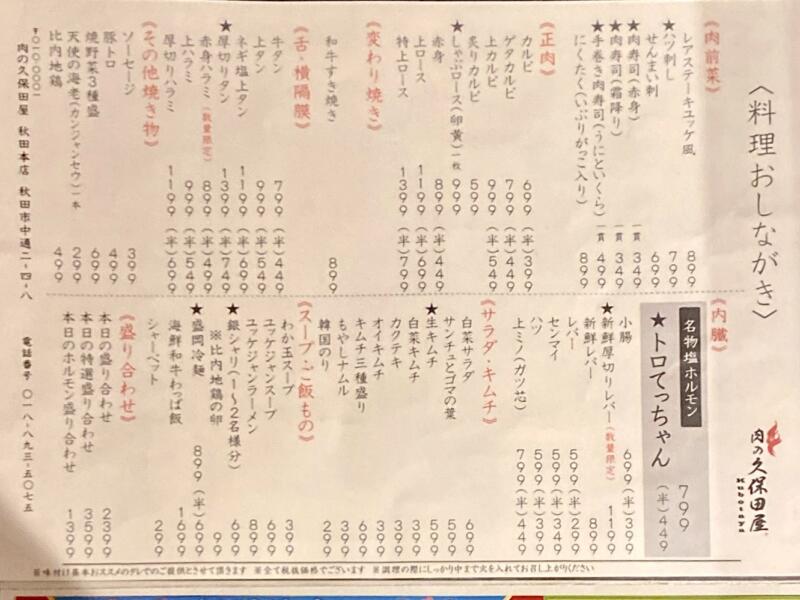 〈料理おしながき〉
肉の久保田屋
Kubotaya
《肉前菜》
レアステーキユッケ風 899
★ハツ刺し 799
せんまい刺 699
★肉寿司(赤身) 一貫 349
★肉寿司(霜降り) 一貫 349
★手巻き肉寿司(うにといくら) 一貫 499
にくたく(いぶりがっこ入り) 899
《正肉》
カルビ 699(半)399
ゲタカルビ 799(半)449
上カルビ 999(半)549
炙りカルビ 599
★しゃぶロース(卵黄)一枚 999
赤身 899(半)449
上ロース 1199(半)699
特上ロース 1399(半)799
《変わり焼き》
和牛すき焼き 899
《舌・横隔膜》
牛タン 799(半)449
上タン 999(半)549
ネギ塩上タン 1199(半)699
★厚切りタン 1399(半)749
赤身ハラミ(数量限定) 899(半)499
上ハラミ 999(半)549
厚切りハラミ 1199(半)699
《その他焼き物》
ソーセージ 399
豚トロ 499
焼野菜3種盛 699
天使の海老(カンジャンセウ)一本 299
比内地鶏 499
〒010-0001
肉の久保田屋 秋田本店 秋田市中通二-四-八 電話番号 〇一八-八九三-五〇七五
《内臓》
名物塩ホルモン
★トロてっちゃん 799
(半)449
小腸 699(半)399
★新鮮厚切りレバー(数量限定) 1199
新鮮レバー 899
レバー 599(半)299
センマイ 599(半)349
ハツ 599(半)399
上ミノ(ガツ芯) 799(半)449
《サラダ・キムチ》
白菜サラダ 699
サンチュとゴマの葉 599
★生キムチ 599
白菜キムチ 399
カクテキ 399
オイキムチ 399
キムチ三種盛り 699
もやしナムル 399
韓国のり 299
《スープ・ご飯もの》
わか玉スープ 399
ユッケジャンスープ 699
ユッケジャンラーメン 899
★銀シャリ(1〜2名様分) 699
※比内地鶏の卵 99
★盛岡冷麺 899(半)699
海鮮和牛わっぱ飯 1699
シャーベット 299
《盛り合わせ》
本日の盛り合わせ 2399
本日の特選盛り合わせ 3599
本日のホルモン盛り合わせ 1399
※味付け基本おススメのタレでのご提供とさせて頂きます ※全て税抜価格でございます ※調理の際にしっかり中まで火を入れてお召し上がりください